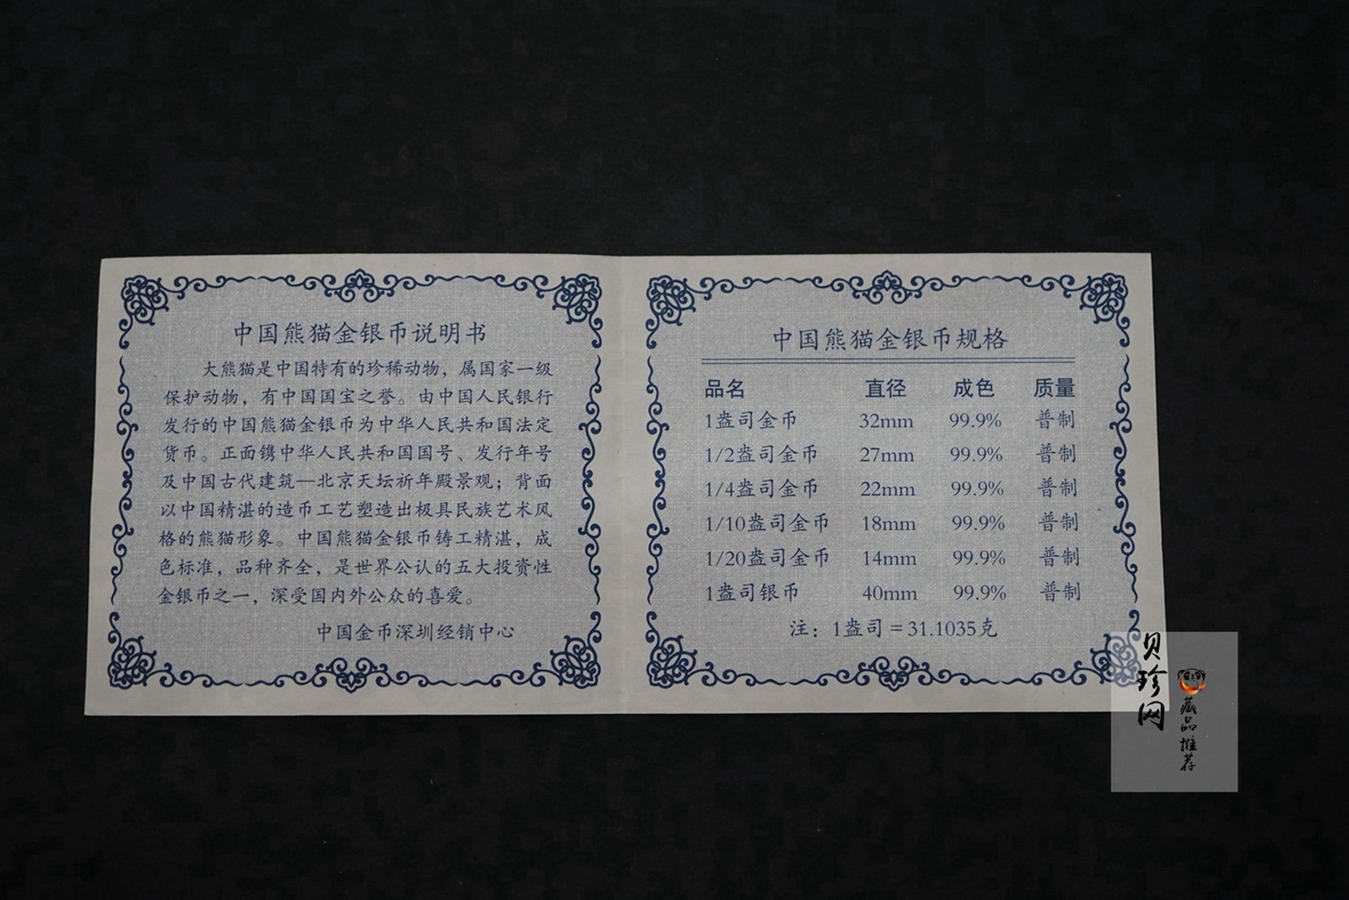 中国熊猫金银币说明书
大熊猫是中国特有的珍稀动物，属国家一级
保护动物，有中国国宝之誉。由中国人民银行
发行的中国熊猫金银币为中华人民共和国法定
货币。正面镌中华人民共和国国号、发行年号
及中国古代建筑—北京天坛祈年殿景观；背面
以中国精湛的造币工艺塑造出极具民族艺术风
格的熊猫形象。中国熊猫金银币铸工精湛，成
色标准，品种齐全，是世界公认的五大投资性
金银币之一，深受国内外公众的喜爱。
中国金币深圳经销中心
中国熊猫金银币规格
品名 直径 成色 质量
1盎司金币 32mm 99.9% 普制
1/2盎司金币 27mm 99.9% 普制
1/4盎司金币 22mm 99.9% 普制
1/10盎司金币 18mm 99.9% 普制
1/20盎司金币 14mm 99.9% 普制
1盎司银币 40mm 99.9% 普制
注：1盎司＝31.1035克
贝珍网
藏品推荐